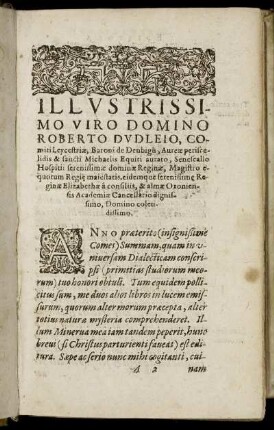 ILLVSTRISSI-
MO VIRO DOMINO
ROBERTO DVDLEIO, CO-
miti Leycestriæ, Baroni de Denbigh, Aureæ periscelidis
& sancti Michaelis Equiti aurato, Senescallo
Hospitii serenissimæ dominæ Reginæ, Magistro e-
quorum Regiæ maiestatis, eidemque serenissimæ Re-
ginæ Elizabethæ à consiliis, & almæ Oxonien-
sis Academiæ Cancellario dignis-
simo, Domino colen-
dissimo.
ANno præterito (insignissime
Comes) Summam, quam in v-
niuersam Dialecticam conscri-
psi (primitias studiorum meo-
rum) tuo honori obtuli. Tum equidem polli-
citus sum, me duos alios libros in lucem emis-
surum, quorum alter morum præcepta, alter
totius naturæ mysteria comprehenderet. Il-
lum Minerua mea iam tandem peperit, hunc
breui (si Christus parturienti faueat) est edi-
tura. Sæpe ac serio nunc mihi cogitanti, cui-
A 2 nam